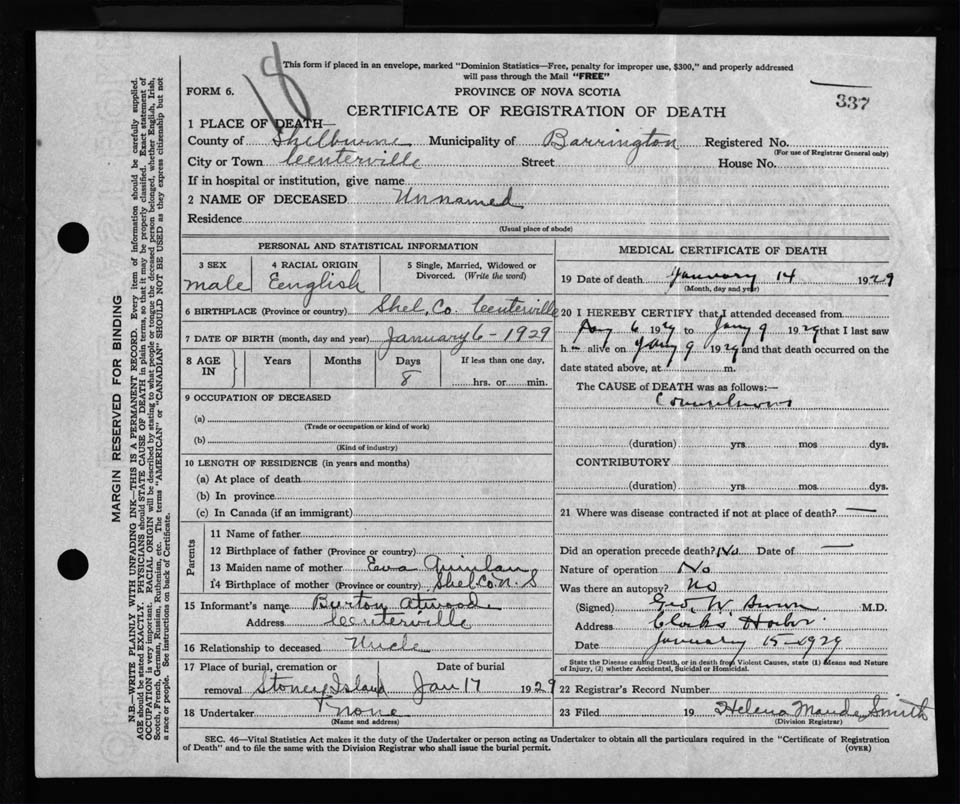 This form if placed in an envelope, marked "Dominion Statistics—Free, penalty for improper use, $300," and properly addressed
will pass through the Mail "FREE"
18
FORM 6.
PROVINCE OF NOVA SCOTIA
337
CERTIFICATE OF REGISTRATION OF DEATH
1 PLACE OF DEATH—
County of Shelburne Municipality of Barrington Registered No.
(For use of Registrar General only)
City or Town Centerville Street House No.
If in hospital or institution, give name
2 NAME OF DECEASED Unnamed
Residence
(Usual place of abode)
PERSONAL AND STATISTICAL INFORMATION
3 SEX 4 RACIAL ORIGIN 5 Single, Married, Widowed or Divorced. (Write the word)
male Eenglish
6 BIRTHPLACE (Province or country) Shel, Co. Centerville
7 DATE OF BIRTH (month, day and year) January 6-1929
8 AGE IN Years Months Days If less than one day,
8 hrs. or min.
9 OCCUPATION OF DECEASED
(a)
(Trade or occupation or kind of work)
(b)
(Kind of industry)
10 LENGTH OF RESIDENCE (in years and months)
(a) At place of death
(b) In province
(c) In Canada (if an immigrant)
Parents
11 Name of father
12 Birthplace of father (Province or country)
13 Maiden name of mother Eva Quinlan
14 Birthplace of mother (Province or country) Shel Co N. S
15 Informant's name Burton Atwood
Address Centerville
16 Relationship to deceased Uncle
17 Place of burial, cremation or Date of burial
removal Stoney Island Jan 17 1929
18 Undertaker none
(Name and address)
MEDICAL CERTIFICATE OF DEATH
19 Date of death January 14 1929
(Month, day and year)
20 I HEREBY CERTIFY that I attended deceased from
Jany 6 1929 to Jany 9 1929 that I last saw
h alive on Jany 9 1929 and that death occurred on the
date stated above, at m.
The CAUSE of DEATH was as follows:—
(duration) yrs. mos. dys.
CONTRIBUTORY
(duration) yrs. mos. dys.
21 Where was disease contracted if not at place of death? —
Did an operation precede death? No Date of —
Nature of operation No
Was there an autopsy? no
(Signed) Geo. W. M.D.
Address Clarks Harbor
Date January 15-1929
State the Disease causing Death, or in death from Violent Causes, state (1) Means and Nature
of Injury, (2) whether Accidental, Suicidal or Homicidal.
22 Registrar's Record Number
23 Filed 19 Helena Maude Smith
(Division Registrar)
SEC. 46—Vital Statistics Act makes it the duty of the Undertaker or person acting as Undertaker to obtain all the particulars required in the "Certificate of Registration
of Death" and to file the same with the Division Registrar who shall issue the burial permit.
(OVER)
MARGIN RESERVED FOR BINDING
N.B.—WRITE PLAINLY WITH UNFADING INK—THIS IS A PERMANENT RECORD. Every item of information should be carefully supplied.
AGE should be stated EXACTLY. PHYSICIANS should STATE CAUSE OF DEATH in plain terms, so that it may be properly classified. Exact statement of
OCCUPATION is very important. RACIAL ORIGIN will be described by stating to what people or tongue the deceased person belonged, whether English, Irish,
Scotch, French, German, Russian, Ruthenian, etc. The terms "AMERICAN" or "CANADIAN" SHOULD NOT BE USED as they express citizenship but not
a race or people. See instructions on back of Certificate.